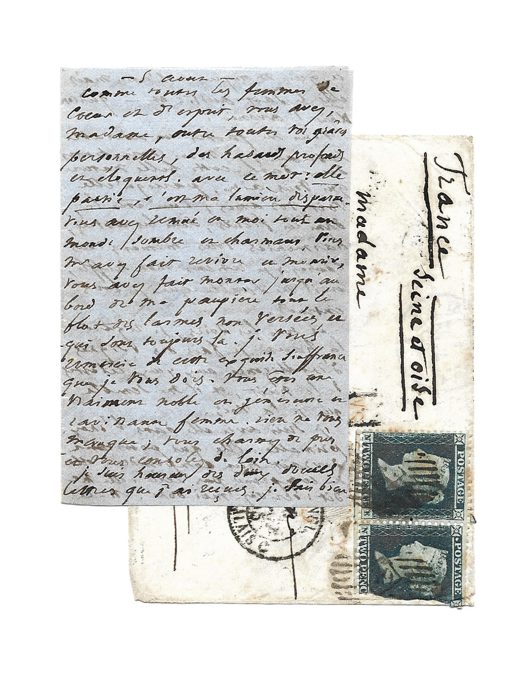 — 5 aout —
comme toutes les femmes de
Coeur et d'esprit, vous avez,
madame, outre toutes vos graces
personnelles, des hasards profonds
et éloquents. avec ce mot: elle
c'est ma lumière disparue
vous avez remué en moi tout un
monde sombre et charmant. Vous
m'avez fait revivre ce
vous avez fait monter jusqu'au
bord de ma paupière tout le
flot des larmes non versées,
qui sont toujours là. je vous
remercie de cette exquise souffrance
que je vous dois. Vous êtes une
vraiment noble et généreuse et
femme. rien ne vous
manque, vous charmez de près
et vous consolez de loin.
je suis heureux des deux
lettres que j'ai reçues. je suis bien
France
Seine et oise
madame
POSTAGE
TWO PENCE
POSTAGE
TWO PENCE